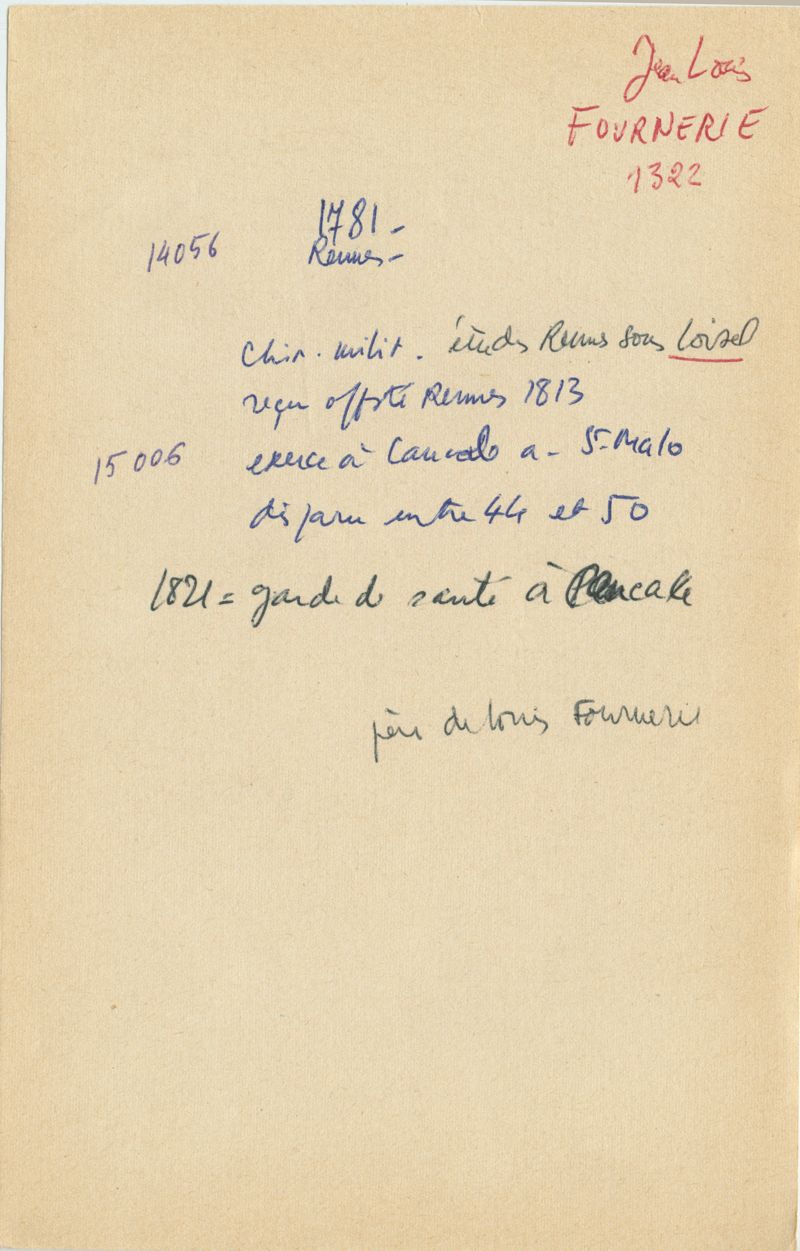 Jean Louis
FOURNERIE
1322
1781 -
14056 Rennes -
Chir. milit. études Rennes sous Loisel
reçu offsté Rennes 1813
15006 exerce à Cancale a - St-Malo
disparu entre 44 et 50
1821 = garde de santé à Cancale
père de Louis Fournerie